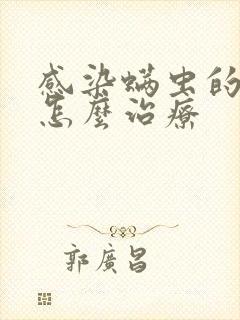 感染螨虫的
怎麼治療
郭廣昌